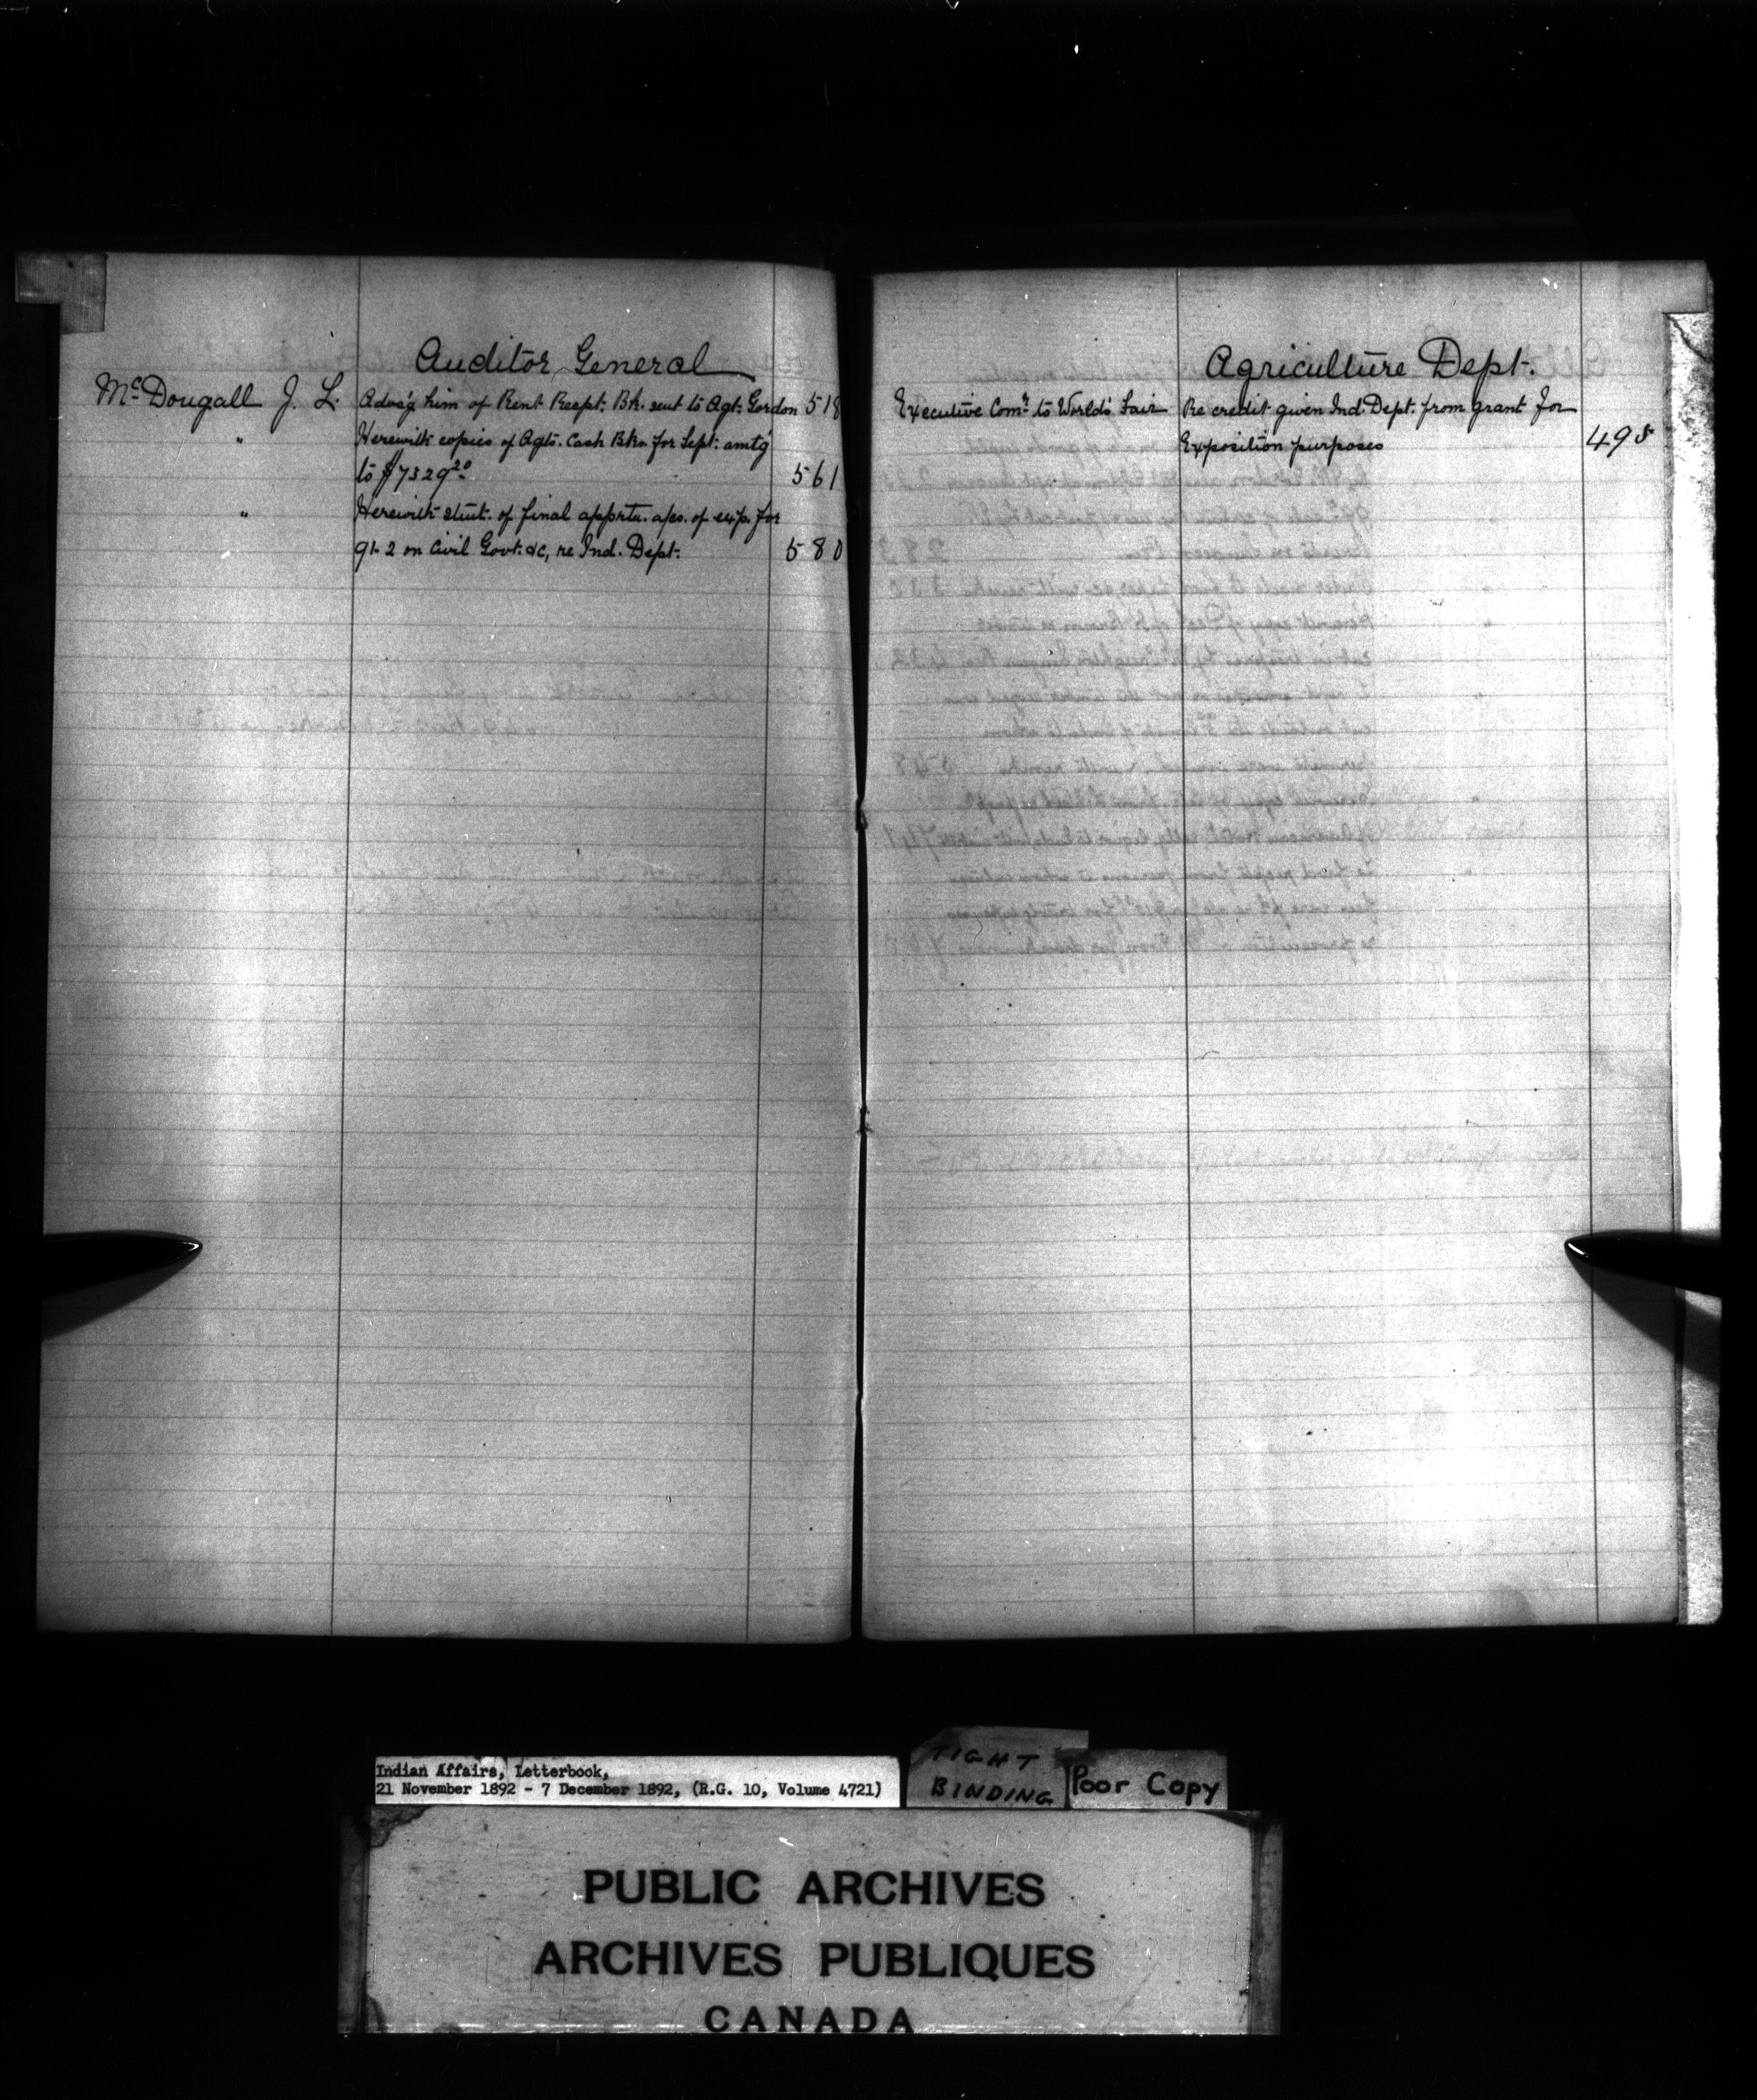 Auditor General
McDougall J. L. Advs'g him of Rent Recpt. Bk. sent to Agt. Gordon 518
" Herewith copies of Agts. Cash Bks. for Sept. amtg
to $7529.20 561
" Herewith stmt. of final apprtn. a/cs. of exp. for
91-2 on Civil Govt. &c, re Ind. Dept. 580
Agriculture Dept.
Executive Comr. to World's Fair Re credit given Ind. Dept. from grant for
Exposition purposes 495
Indian Affairs, Letterbook,
21 November 1892 - 7 December 1892, (R.G. 10, Volume 4721)
TIGHT
BINDING
Poor Copy
PUBLIC ARCHIVES
ARCHIVES PUBLIQUES
CANADA